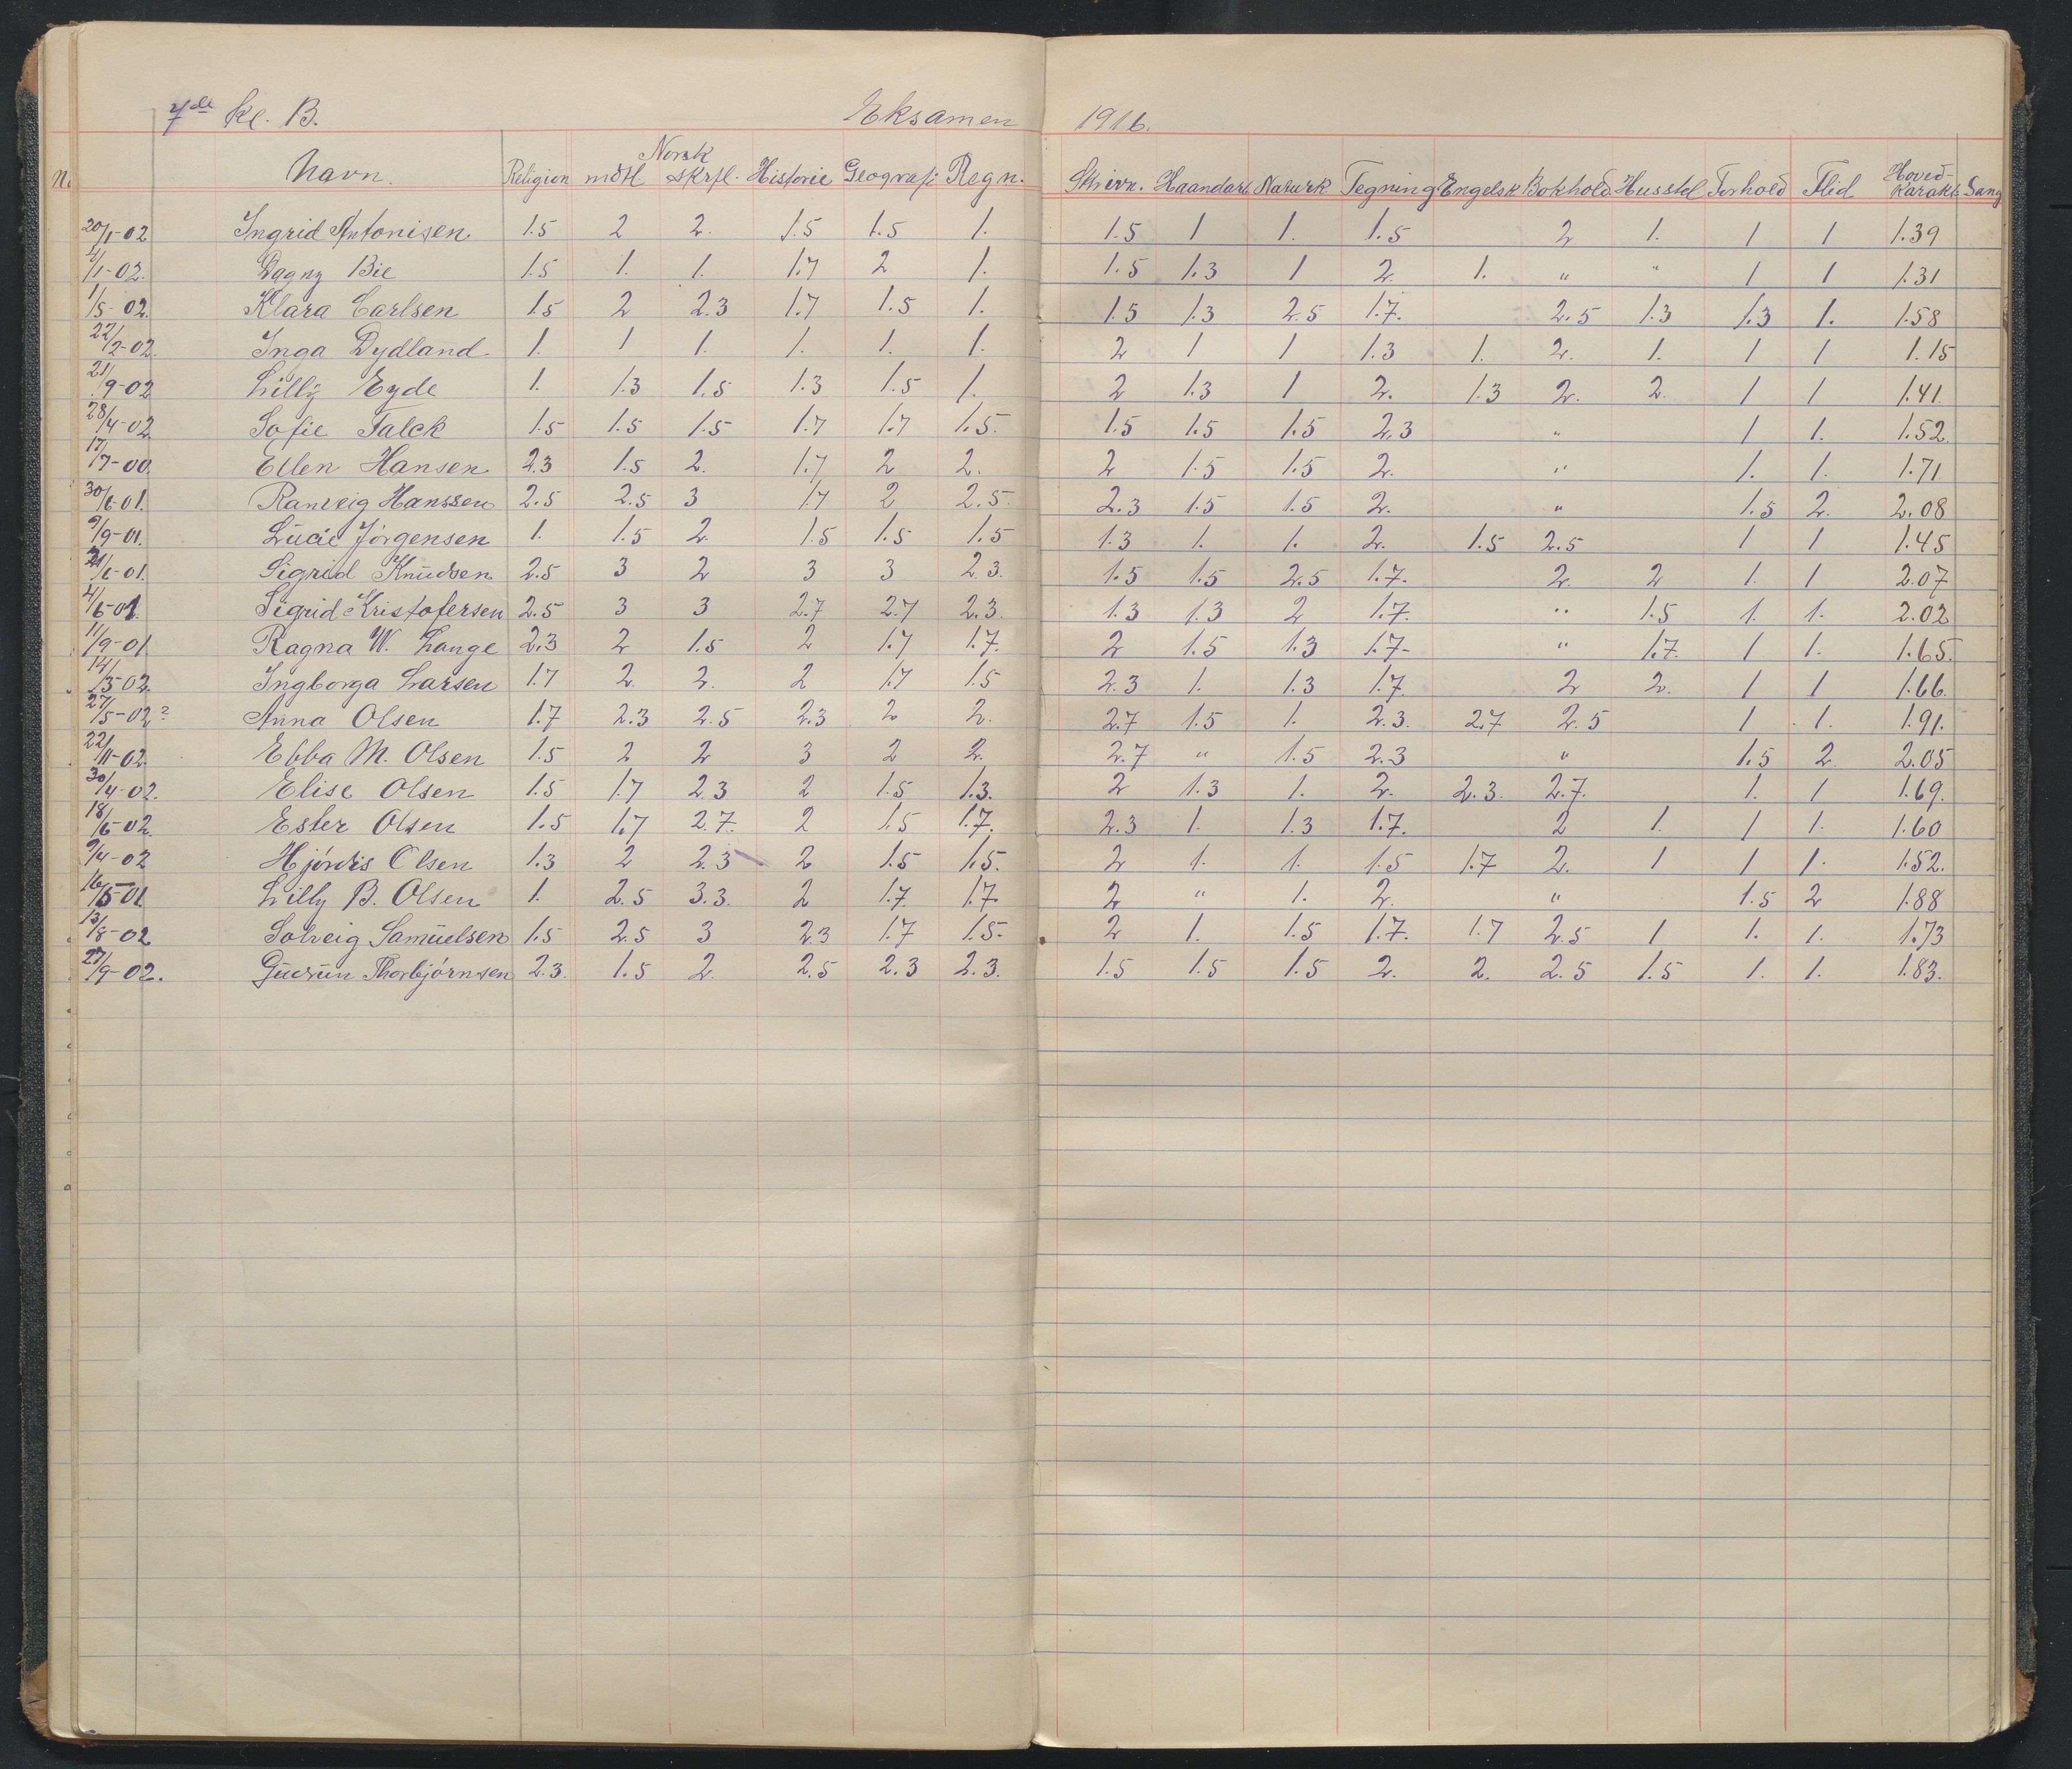 7de Kl. B. Eksamen 1916.
Norsk Hoved-
N. Navn. Religion mdtl skrftl. Historie Geografi Regn. Skrivn. Haandarb Naturk Tegning Engelsk Bokhold Husstel Forhold Flid Karakt. Sang
20/1-02 Ingrid Antonisen 1.5 2 2. 1.5 1.5 1. 1.5 1 1. 1.5 2 1. 1 1 1.39
4/1-02. Dagny Bie 1.5 1. 1. 1.7 2 1. 1.5 1.3 1 2. 1. " " 1 1 1.31
1/5-02. Klara Carlsen 1.5 2 2.3 1.7 1.5 1. 1.5 1.3 2.5 1.7. 2.5 1.3 1.3 1. 1.58
22/2-02. Inga Dydland 1. 1 1. 1. 1. 1. 2 1 1 1.3 1. 2. 1. 1 1 1.15
21/9-02 Lilly Eyde 1. 1.3 1.5 1.3 1.5 1. 2 1.3 1 2. 1.3 2. 2. 1 1 1.41
28/4-02 Sofie Falck 1.5 1.5 1.5 1.7 1.7 1.5. 1.5 1.5 1.5 2.3 " 1 1. 1.52
17/7-00. Ellen Hansen 2.3 1.5 2. 1.7 2 2. 2 1.5 1.5 2. " 1. 1. 1.71
30/6-01. Ranveig Hanssen 2.5 2.5 3 1.7 2 2.5. 2.3 1.5 1.5 2. " 1.5 2. 2.08
9/9-01. Lucie Jörgensen 1. 1.5 2. 1.5 1.5 1.5 1.3 1. 1. 2. 1.5 2.5 1 1 1.45
21/6-01. Sigrid Knudsen 2.5 3 2 3 3 2.3. 1.5 1.5 2.5 1.7. 2. 2 1. 1 2.07
4/6-01. Sigrid Kristofersen 2.5 3 3 2.7 2.7 2.3. 1.3 1.3 2 1.7. " 1.5 1. 1. 2.02
11/9-01. Ragna W. Lange 2.3 2 1.5 2 1.7 1.7. 2 1.5 1.3 1.7. " 1.7. 1 1. 1.65.
14/3-02. Ingborga Larsen 1.7 2. 2. 2 1.7 1.5 2.3 1. 1.3 1.7. 2 2. 1 1 1.66.
27/5-02? Anna Olsen 1.7 2.3 2.5 2.3 2 2. 2.7 1.5 1. 2.3. 2.7 2.5 1 1. 1.91.
22/11-02. Ebba M. Olsen 1.5 2 2 3 2 2. 2.7 " 1.5 2.3 " 1.5 2. 2.05
30/4-02. Elise Olsen 1.5 1.7 2.3 2 1.5 1.3. 2 1.3 1. 2. 2.3. 2.7. 1. 1 1.69.
18/6-02. Ester Olsen 1.5 1.7 2.7. 2 1.5 1.7. 2.3 1. 1.3 1.7. 2 1. 1 1. 1.60
9/4-02 Hjördis Olsen 1.3 2 2.3 2 1.5 1.5. 2 1. 1. 1.5 1.7 2. 1 1 1. 1.52.
16/5-01. Lilly B. Olsen 1. 2.5 3.3. 2 1.7. 1.7. 2 " 1. 2. " 1.5 2 1.88
13/8-02 Solveig Samuelsen 1.5 2.5 3 2.3 1.7 1.5. 2 1. 1.5 1.7. 1.7 2.5 1 1. 1. 1.73
27/9-02. Gudrun Thorbjörnsen 2.3. 1.5 2. 2.5 2.3 2.3. 1.5 1.5 1.5 2. 2. 2.5 1.5 1. 1. 1.83.